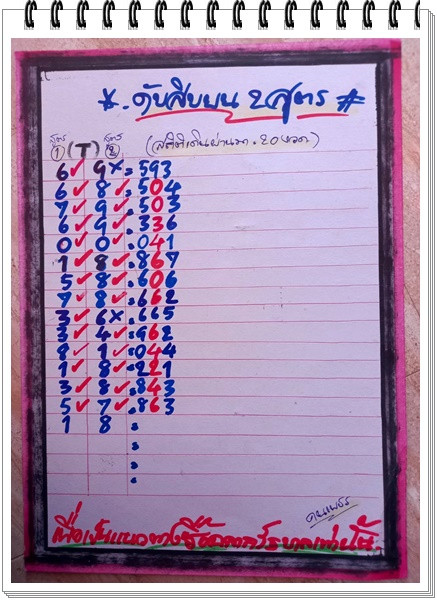 *.ดับสิบบน 2 สูตร #
สูตร สูตร
① (T) ② (สถิติเดินผ่านมา.20งวด)
6✓ 9×:593
6✓ 8✓:504
7✓ 9✓:503
6✓ 9✓:336
0✓ 0✓:041
1✓ 8✓:867
5✓ 8✓:606
7✓ 8✓:662
3✓ 6×:665
3✓ 4✓:962
8✓ 1✓:044
1✓ 8✓:221
3✓ 8✓:843
5✓ 7✓:863
1 8 :
:
:
:
คนเพชร
เพื่อเป็นแนวทางใช้
เท่านั้น